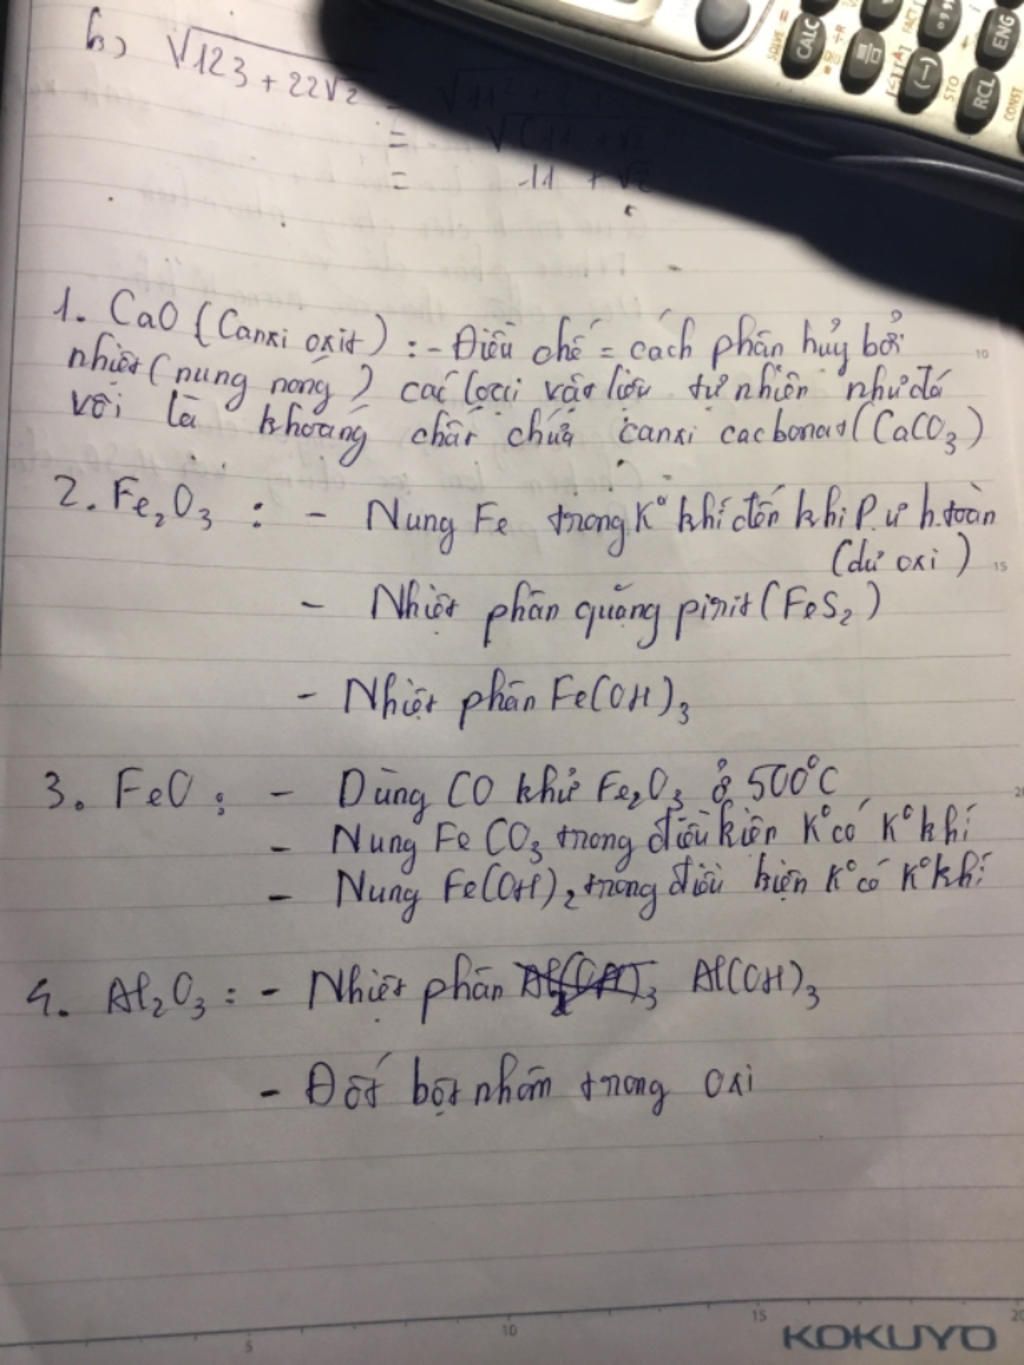 b) √123 + 22√2 = √11² +
= √(11 + √2
= 11 + √2
SOLVE = CALC
FACT
ENG
(−)
STO RCL
CONST
1. CaO (Canxi oxit) : - Điều chế = cách phân hủy bởi
nhiệt (nung nóng) các loại vật liệu tự nhiên như đá
vôi là khoáng chất chứa canxi cacbonat (CaCO₃)
2. Fe₂O₃ : - Nung Fe trong K° khí đến khi P.ư h.toàn
(dư oxi)
- Nhiệt phân quặng pirit (FeS₂)
- Nhiệt phân Fe(OH)₃
3. FeO : - Dùng CO khử Fe₂O₃ ở 500°C
- Nung FeCO₃ trong điều kiện K° có K° khí
- Nung Fe(OH)₂ trong điều kiện K° có K° khí
4. Al₂O₃ : - Nhiệt phân Al(OH)₃
- Đốt bột nhôm trong oxi
10
15
20
5 10 15 20
KOKUYO